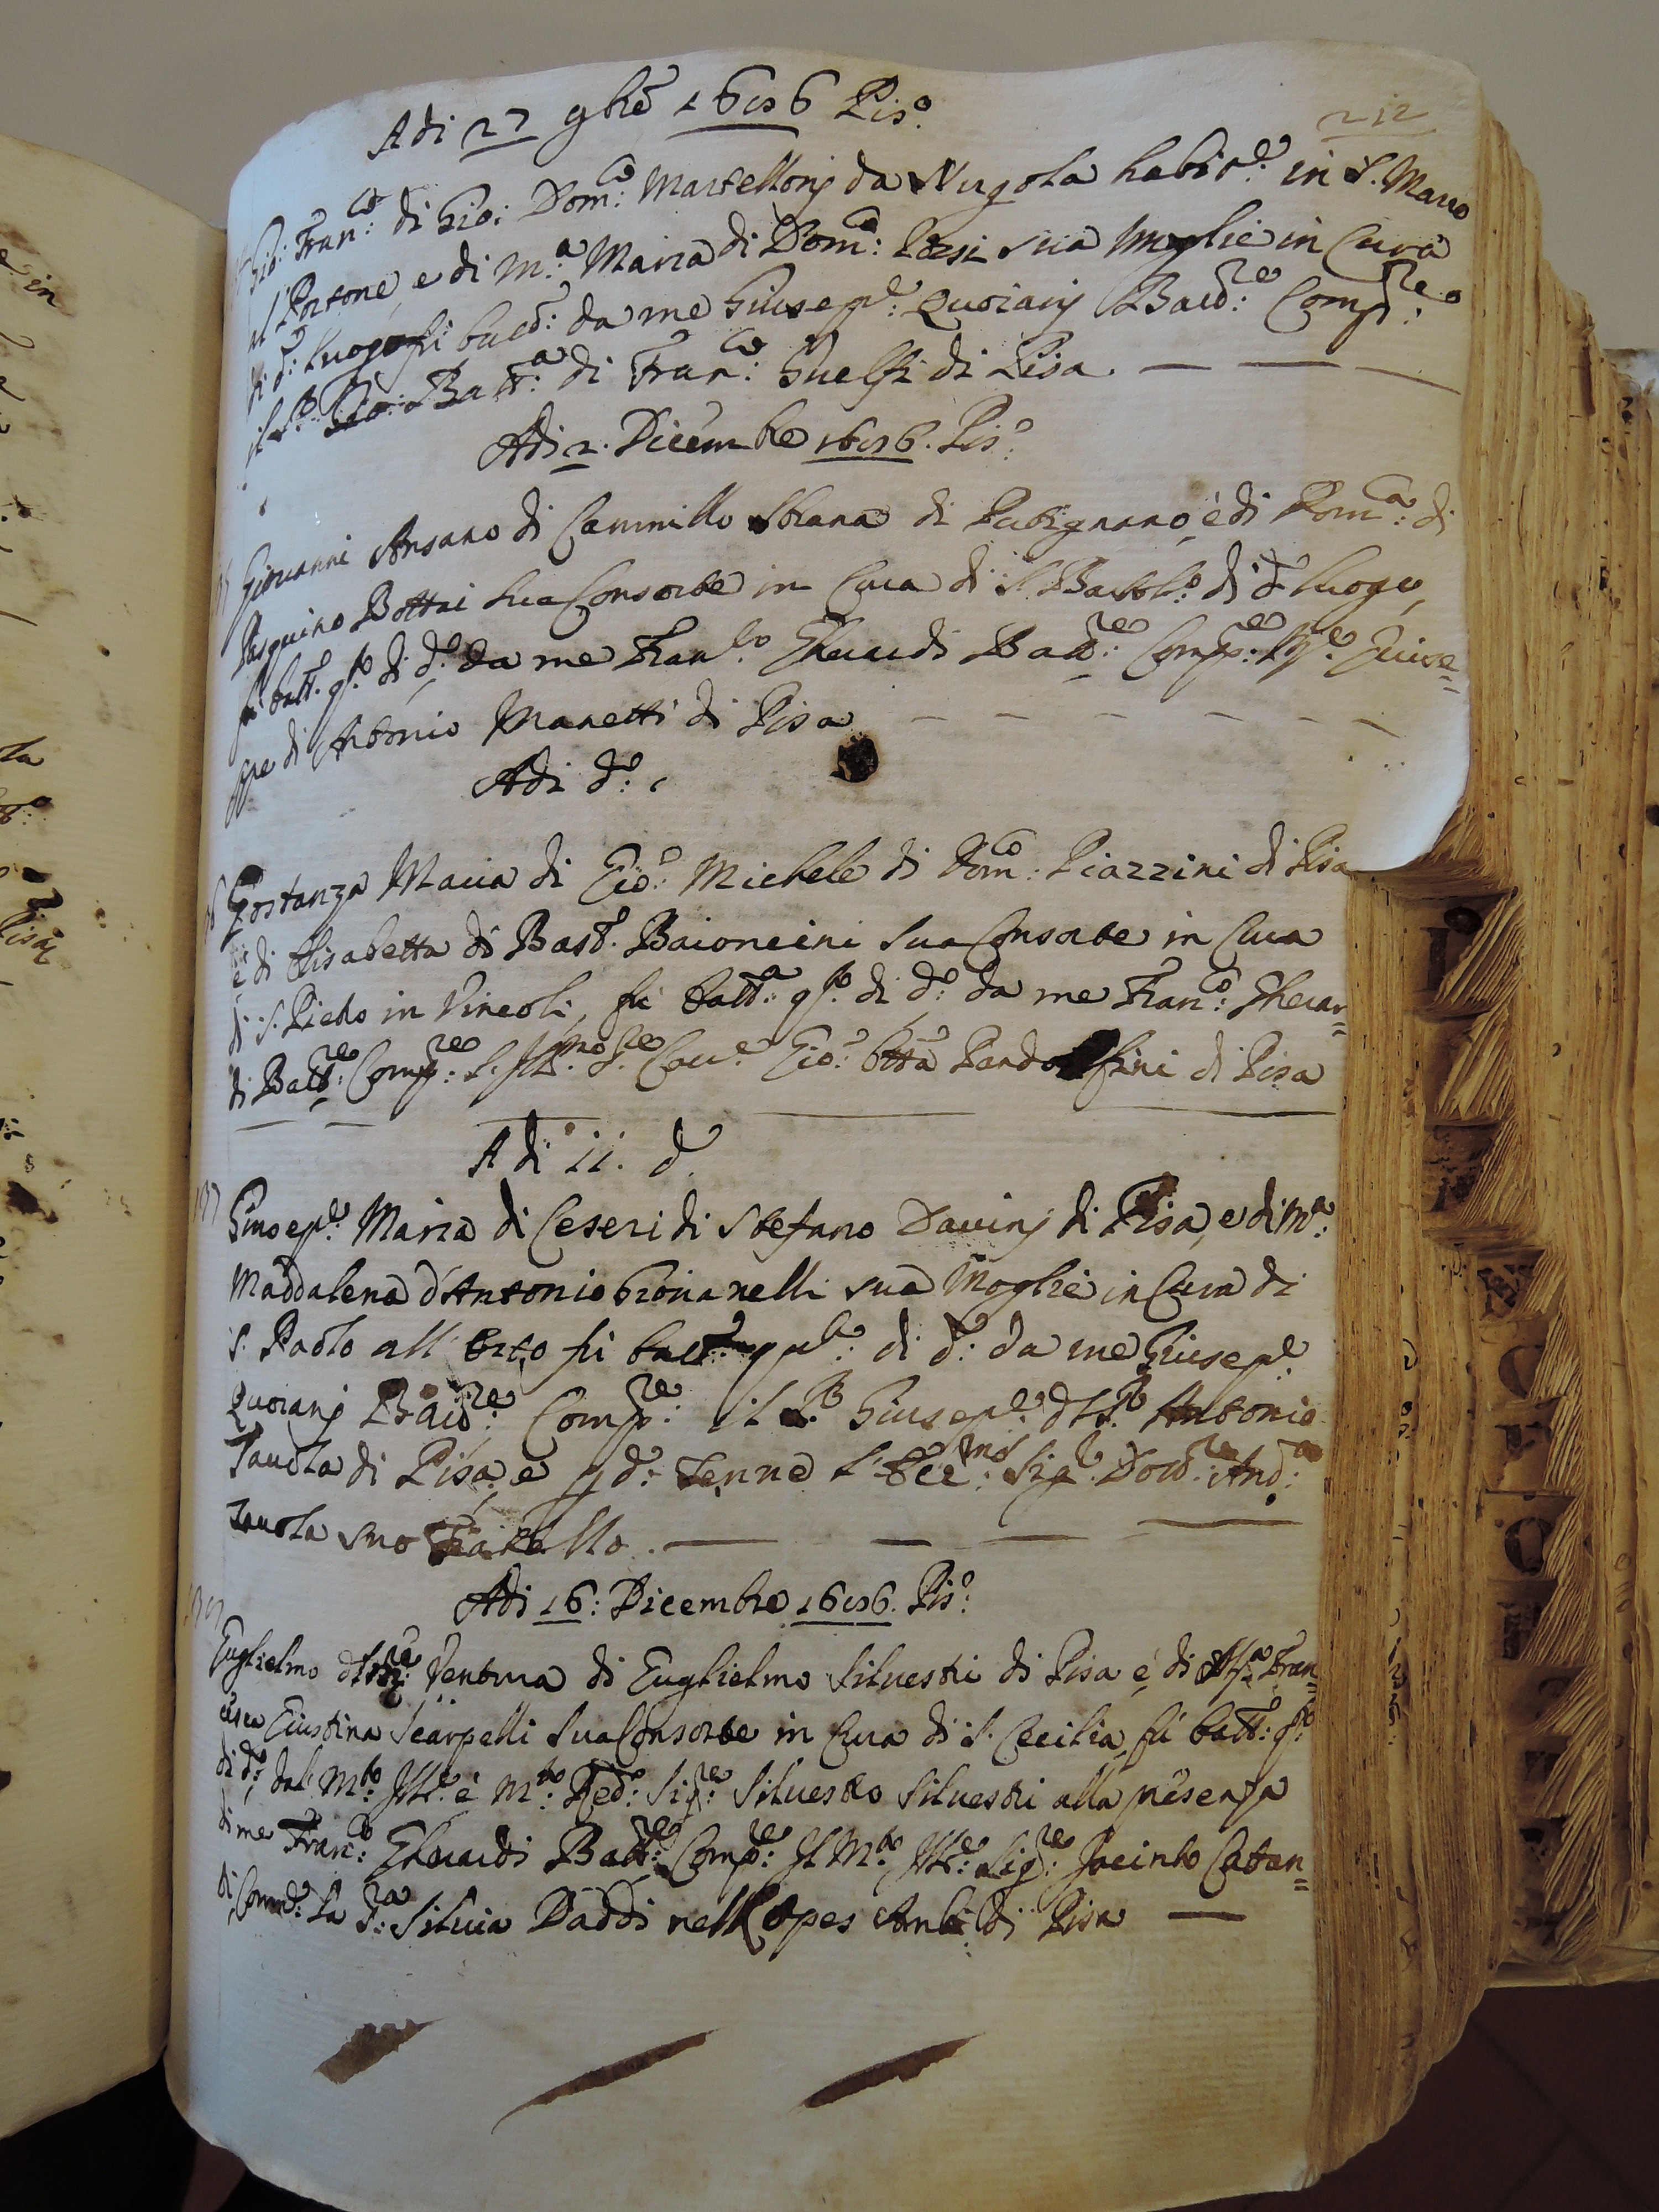 212
Adi 27 9bre 1656 Pis:o
Gio: Fran:co di Gio: Dom:co Martellonj da Nugola habit:e in S. Marco
al Portone e di M:a Maria di Dom:co sua Moglie in Cura
di d:o luogo fu batt:o da me Giusep:e Quoianj Batt:re Comp:re
il S:r Gio: Batt:a di Fran:co Guelfi di Pisa.
Adi 2. Dicembre 1656. Pis:o
Giovanni Ansano di Cammillo Sbrana di Putignano, è di Dom:ca di
Pasquino Bottai sua Consorte in Cura di S. Bartol:o di d:o luogo,
fu batt:o q:to di d:o da me Fran:co Gherardi Batt:re Comp:re Giuse=
ppe di Antonio Manetti di Pisa
Adi d:o
Gostanza Maria di Gio: Michele di Dom:co Piazzini di Pisa
è di Elisabetta di Bast:o Baioncini sua Consorte in Cura
di S. Pietro in Vincoli, fu batt:a q:to di d:o da me Fran:co Gherar=
di Batt:re Comp:re L'Ill:mo S:re Cav:e Gio: Btta Pandolfini di Pisa
Adi 11. d:o
Giusep:e Maria di Ceseri di Stefano Davinj di Pisa, e di M:a
Maddalena d'Antonio sua Moglie in Cura di
S. Paolo all'Orto fu batt:o di d:o da me Giusep:e
Quoianj Batt:re Comp:re il S:r Giusep:e d S:r Antonio
Tavola di Pisa, e p d:o tenne l'Ecc:mo Sig:r Dott:re And:a
Tavola suo Fratello.
Adi 16: Dicembre 1656. Pis:o
Guglielmo Ventura di Guglielmo Silvestri di Pisa è di Fran=
cesca Giustina Scarpelli sua Consorte in Cura di S. Cecilia, fu batt:o q:to
di d:o dal M:to Ill:e è M:to Red:o Sig:re Silvestro Silvestri alla presenza
di me Franc:o Gherardi Batt:re Comp:re Il M:to Ill:e Sig:re Jacinto Catan=
ti, Com:re La S:ra Silvia Daddi nell di Pisa